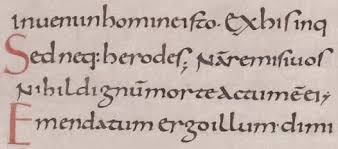 inuenunhomineisto. Exhisinq
Sedneq: herodes; Nāremisiuos
Nihildignūmorteactumēei;
Emendatum ergoillum dimi